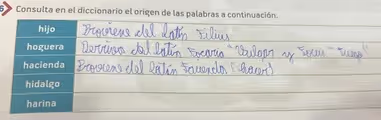 6 Consulta en el diccionario el origen de las palabras a continuación.
hijo Proviene del latín Filius
hoguera Derriva del latín Focaria " y Focus " fuego"
hacienda Proviene del latín Facienda (hacer)
hidalgo
harina